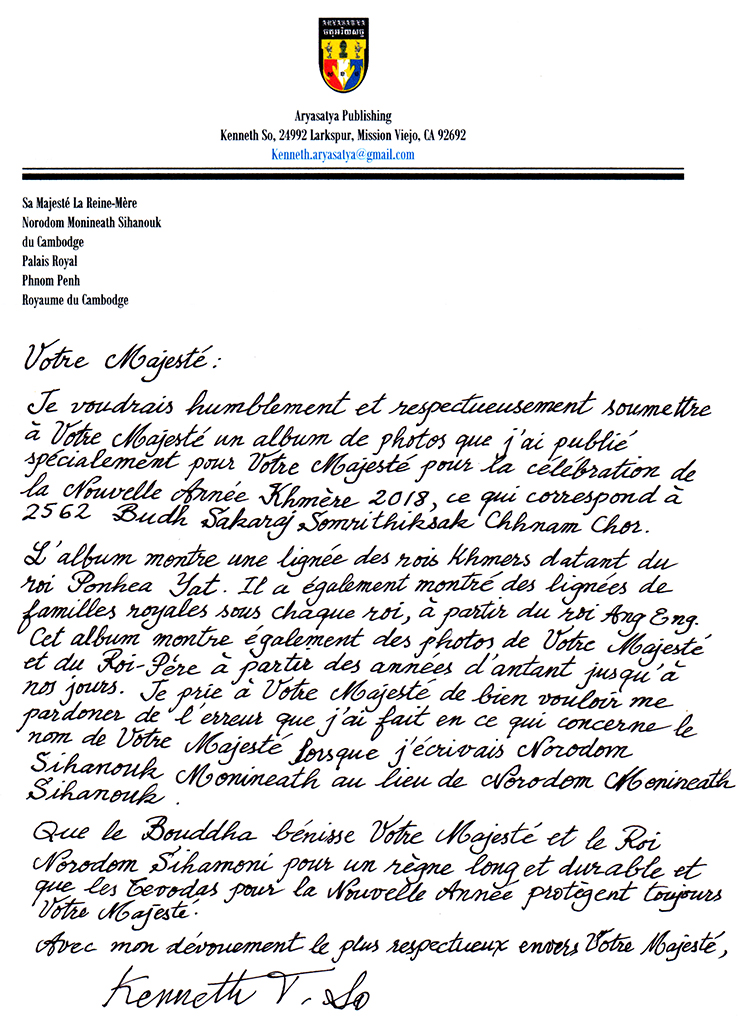 ARYASATYA
ចតុអរិយសច្ច
Aryasatya Publishing
Kenneth So, 24992 Larkspur, Mission Viejo, CA 92692
Kenneth.aryasatya@gmail.com
Sa Majesté La Reine-Mère
Norodom Monineath Sihanouk
du Cambodge
Palais Royal
Phnom Penh
Royaume du Cambodge
Votre Majesté :
Je voudrais humblement et respectueusement soumettre
à Votre Majesté un album de photos que j'ai publié
spécialement pour Votre Majesté pour la célébration de
la Nouvelle Année Khmère 2018, ce qui correspond à
2562 Budh Sakaraj Somrithiksak Chhnam Chor.
L'album montre une lignée des rois Khmers datant du
roi Ponhea Yat. Il a également montré des lignées de
familles royales sous chaque roi, à partir du roi Ang Eng.
Cet album montre également des photos de Votre Majesté
et du Roi-Père à partir des années d'antant jusqu'à
nos jours. Je prie à Votre Majesté de bien vouloir me
pardoner de l'erreur que j'ai fait en ce qui concerne le
nom de Votre Majesté lorsque j'écrivais Norodom
Sihanouk Monineath au lieu de Norodom Monineath
Sihanouk.
Que le Bouddha bénisse Votre Majesté et le Roi
Norodom Sihamoni pour un règne long et durable et
que les Tevodas pour la Nouvelle Année protègent toujours
Votre Majesté.
Avec mon dévouement le plus respectueux envers Votre Majesté,
Kenneth T. So